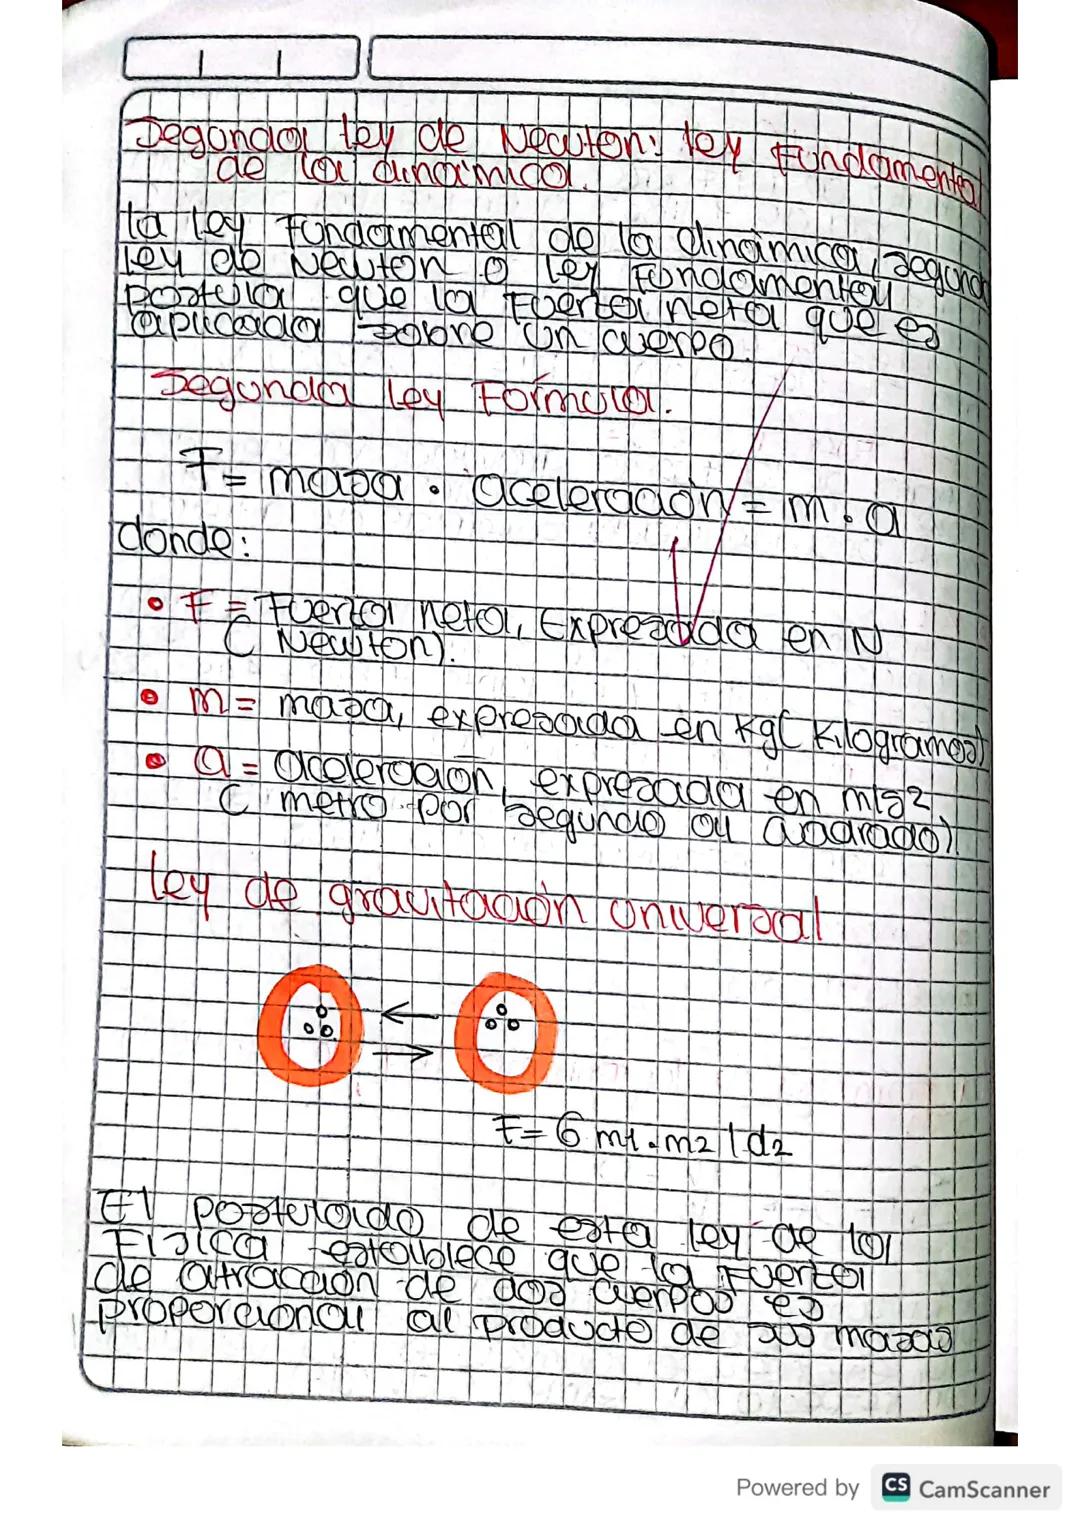 Segunda ley de Newton: ley Fundamental
de la dinámica.
la ley Fundamental de la dinámica, segunda
ley de Newton o ley Fundamental
postula que la Fuerza neta que es
aplicada sobre un cuerpo.
Segunda Ley Fórmula.
F = masa · aceleración = m · a
donde:
• F = Fuerza neta, Expresada en N
( Newton).
• m = masa, expresada en kg( Kilogramos)
• a = aceleración, expresada en m/s2
( metro por segundo al cuadrado).
ley de gravitación universal
F = G m1 · m2 / d2
El postulado de esta ley de la
Física establece que la Fuerza
de atracción de dos cuerpos es
proporcional al producto de sus masas
Powered by CS CamScanner